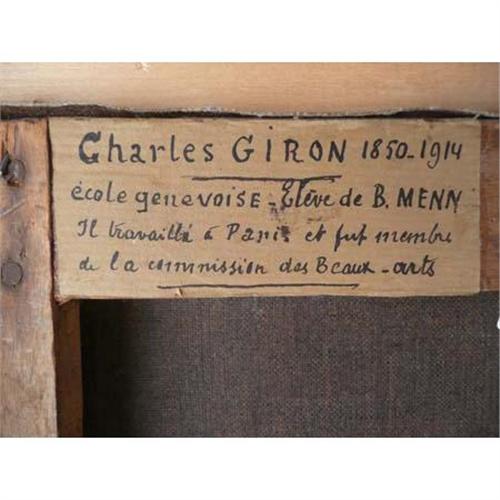 Charles GIRON 1850-1914
école genevoise - Elève de B. MENN
Il travailla à Paris et fut membre
de la commission des Beaux-arts